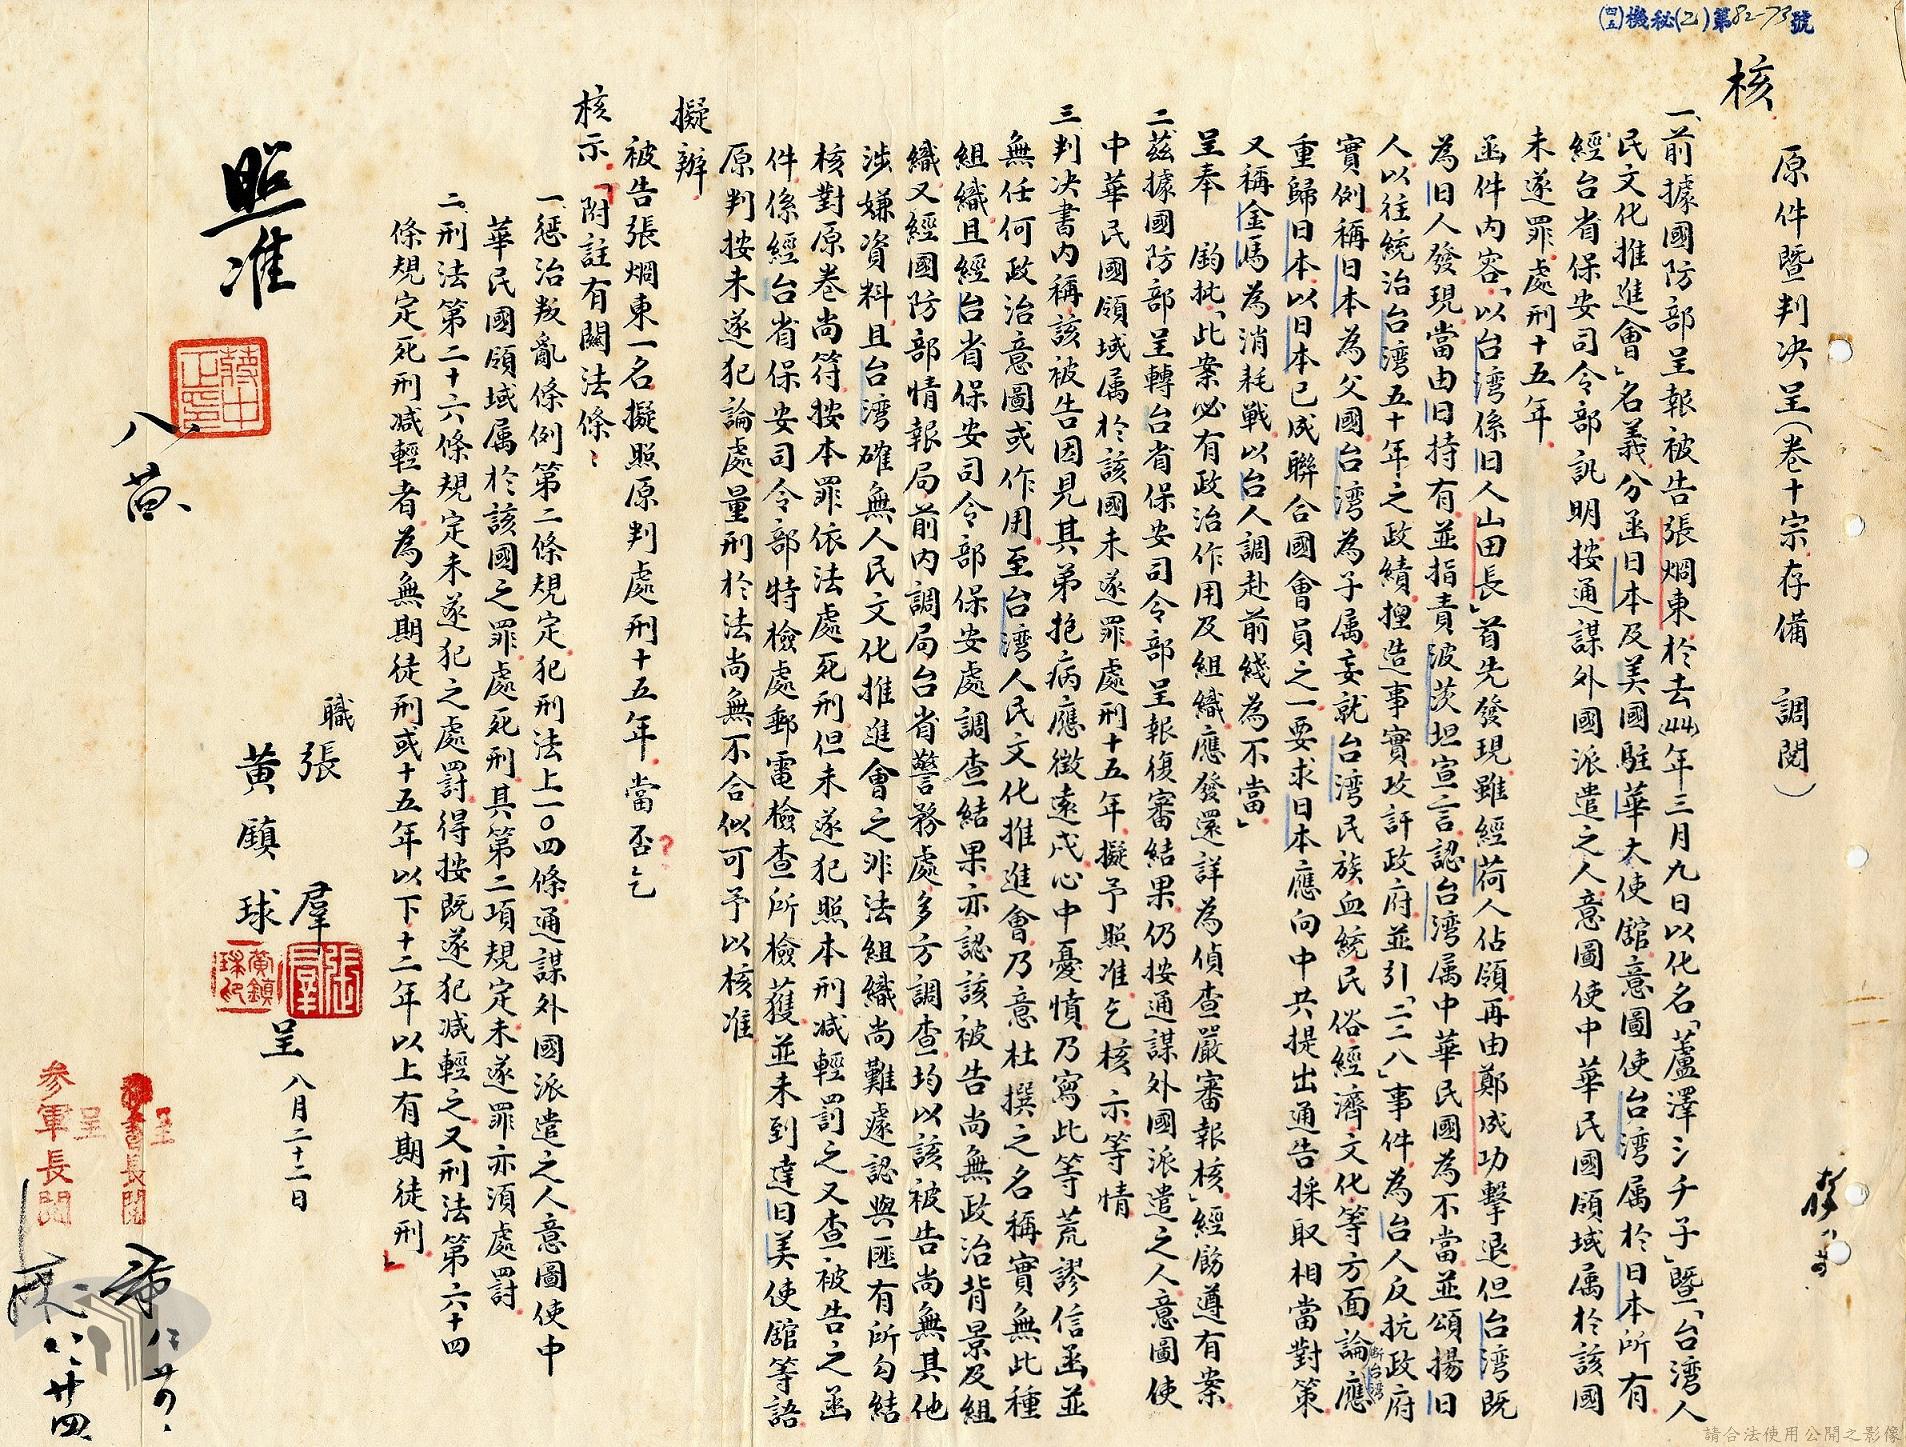 (四五)機秘(乙)第82-73號
核
原件暨判决呈(卷十宗存備 調閱)
一、前據國防部呈報被告張烱東於去(44)年三月九日以化名「蘆澤シチ子」暨「台湾人
民文化推進會」名義分函日本及美國駐華大使舘意圖使台湾属於日本所有
經台省保安司令部訊明按通謀外國派遣之人意圖使中華民國領域属於該國
未遂罪處刑十五年
函件内容「以台湾係旧人山田長」首先發現雖經荷人佔領再由鄭成功擊退但台湾既
為旧人發現當由旧持有並指責波茨坦宣言認台湾属中華民國為不當並頌揚日
人以往統治台湾五十年之政績揑造事實攻訐政府並引「二二八」事件為台人反抗政府
實例稱日本為父國台湾為子属妄就台湾民族血統民俗經濟文化等方面論断台湾應
重歸日本以日本已成聯合國會員之一要求日本應向中共提出通告採取相當對策
又稱金馬為消耗戰以台人調赴前綫為不當」
呈奉 鈞批「此案必有政治作用及組織應發還詳為偵查嚴審報核」經飭遵有案
二、茲據國防部呈轉台省保安司令部呈報復審結果仍按通謀外國派遣之人意圖使
中華民國領域属於該國未遂罪處刑十五年擬予照准乞核示等情
三、判决書内稱該被告因見其弟抱病應徵遠戍心中憂憤乃寫此等荒謬信函並
無任何政治意圖或作用至台湾人民文化推進會乃意杜撰之名稱實無此種
組織且經台省保安司令部保安處調查結果亦認該被告尚無政治背景及組
織又經國防部情報局前内調局台省警務處多方調查均以該被告尚無其他
涉嫌資料且台湾確無人民文化推進會之非法組織尚難遽認與匪有所勾結
核對原卷尚符按本罪依法處死刑但未遂犯照本刑减輕罰之又查被告之函
件係經台省保安司令部特檢處郵電檢查所檢獲並未到達日美使舘等語
原判按未遂犯論處量刑於法尚無不合似可予以核准
擬辦
被告張烱東一名擬照原判處刑十五年當否乞
核示「附註有關法條：
一、惩治叛亂條例第二條規定犯刑法上一〇四條通謀外國派遣之人意圖使中
華民國領域属於該國之罪處死刑其第二項規定未遂罪亦須處罰
二、刑法第二十六條規定未遂犯之處罰得按既遂犯减輕之又刑法第六十四
條規定死刑减輕者為無期徒刑或十五年以下十二年以上有期徒刑」
職張羣
黃鎮球
呈 八月二十二日
張羣
黃鎮球印
照准
蔣中正印
呈
書長閱
呈
参軍長閱
八、廿四
請合法使用公開之影像